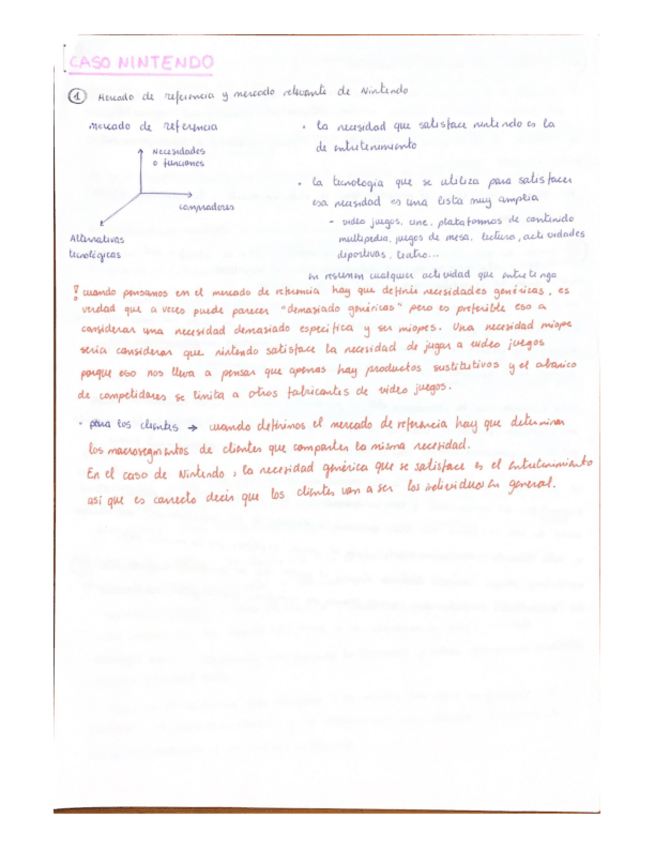 CASO NINTENDO
1 Mercado de referencia y mercado relevante de Nintendo
mercado de referencia
Necesidades
o funciones
compradores
Alternativas
tecnológicas
· la necesidad que satisface nintendo es la
de entretenimiento
· la tecnología que se utiliza para satisfacer
esa necesidad es una lista muy amplia
- video juegos, cine, plataformas de contenido
multipedia, juegos de mesa, lectura, actividades
deportivas, teatro...
en resumen cualquier actividad que entretenga
! cuando pensamos en el mercado de referencia hay que definir necesidades genéricas, es
verdad que a veces puede parecer "demasiado genéricas" pero es preferible eso a
considerar una necesidad demasiado especifica y ser miopes. Una necesidad miope
seria considerar que nintendo satisface la necesidad de jugar a video juegos
porque eso nos lleva a pensar que apenas hay productos sustitutivos y el abanico
de competidores se limita a otros fabricantes de video juegos.
· para los clientes → cuando definimos el mercado de referencia hay que determinar
los macrosegmentos de clientes que comparten la misma necesidad.
En el caso de Nintendo, la necesidad genérica que se satisface es el entretenimiento
asi que es correcto decir que los clientes van a ser los individuos en general.